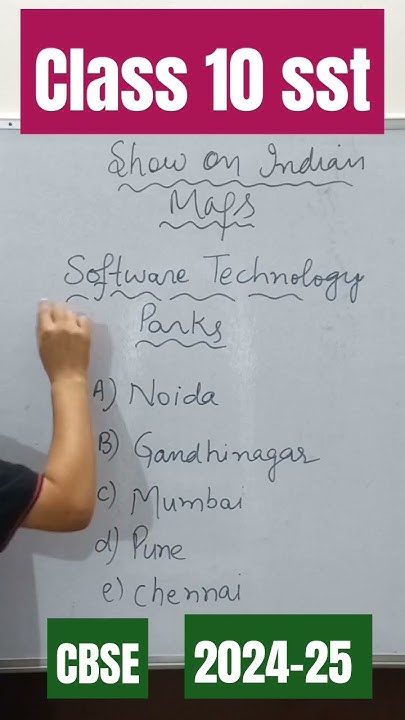 Class 10 sst
Show on Indian
Maps
Software Technology
Parks
A) Noida
B) Gandhinagar
c) Mumbai
d) Pune
e) chennai
CBSE
2024-25